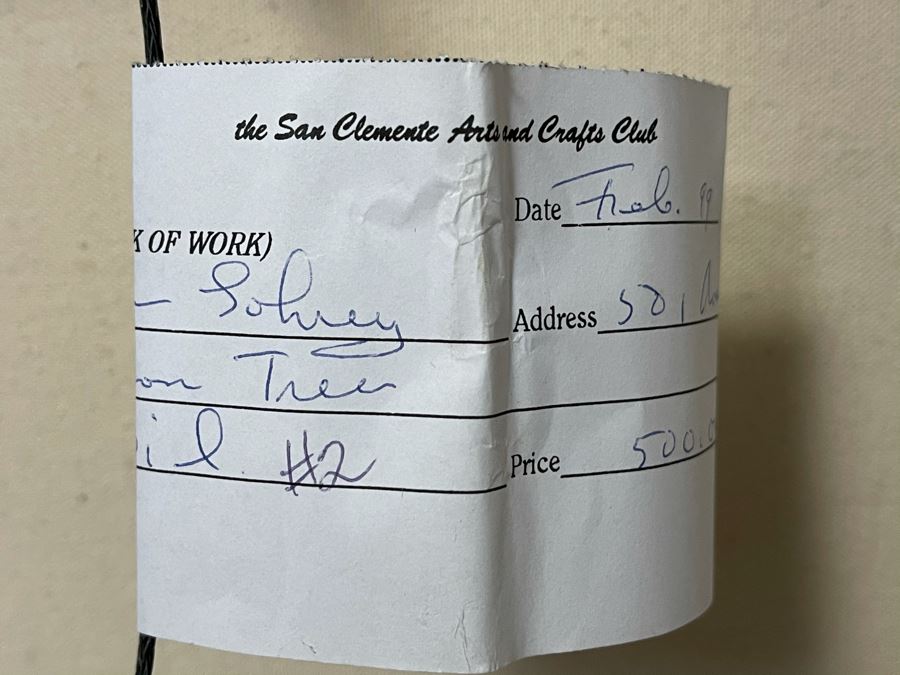 the San Clemente Arts and Crafts Club
Date Feb. 99
K OF WORK)
Address 501
on Tree
Price 500.0
il #2